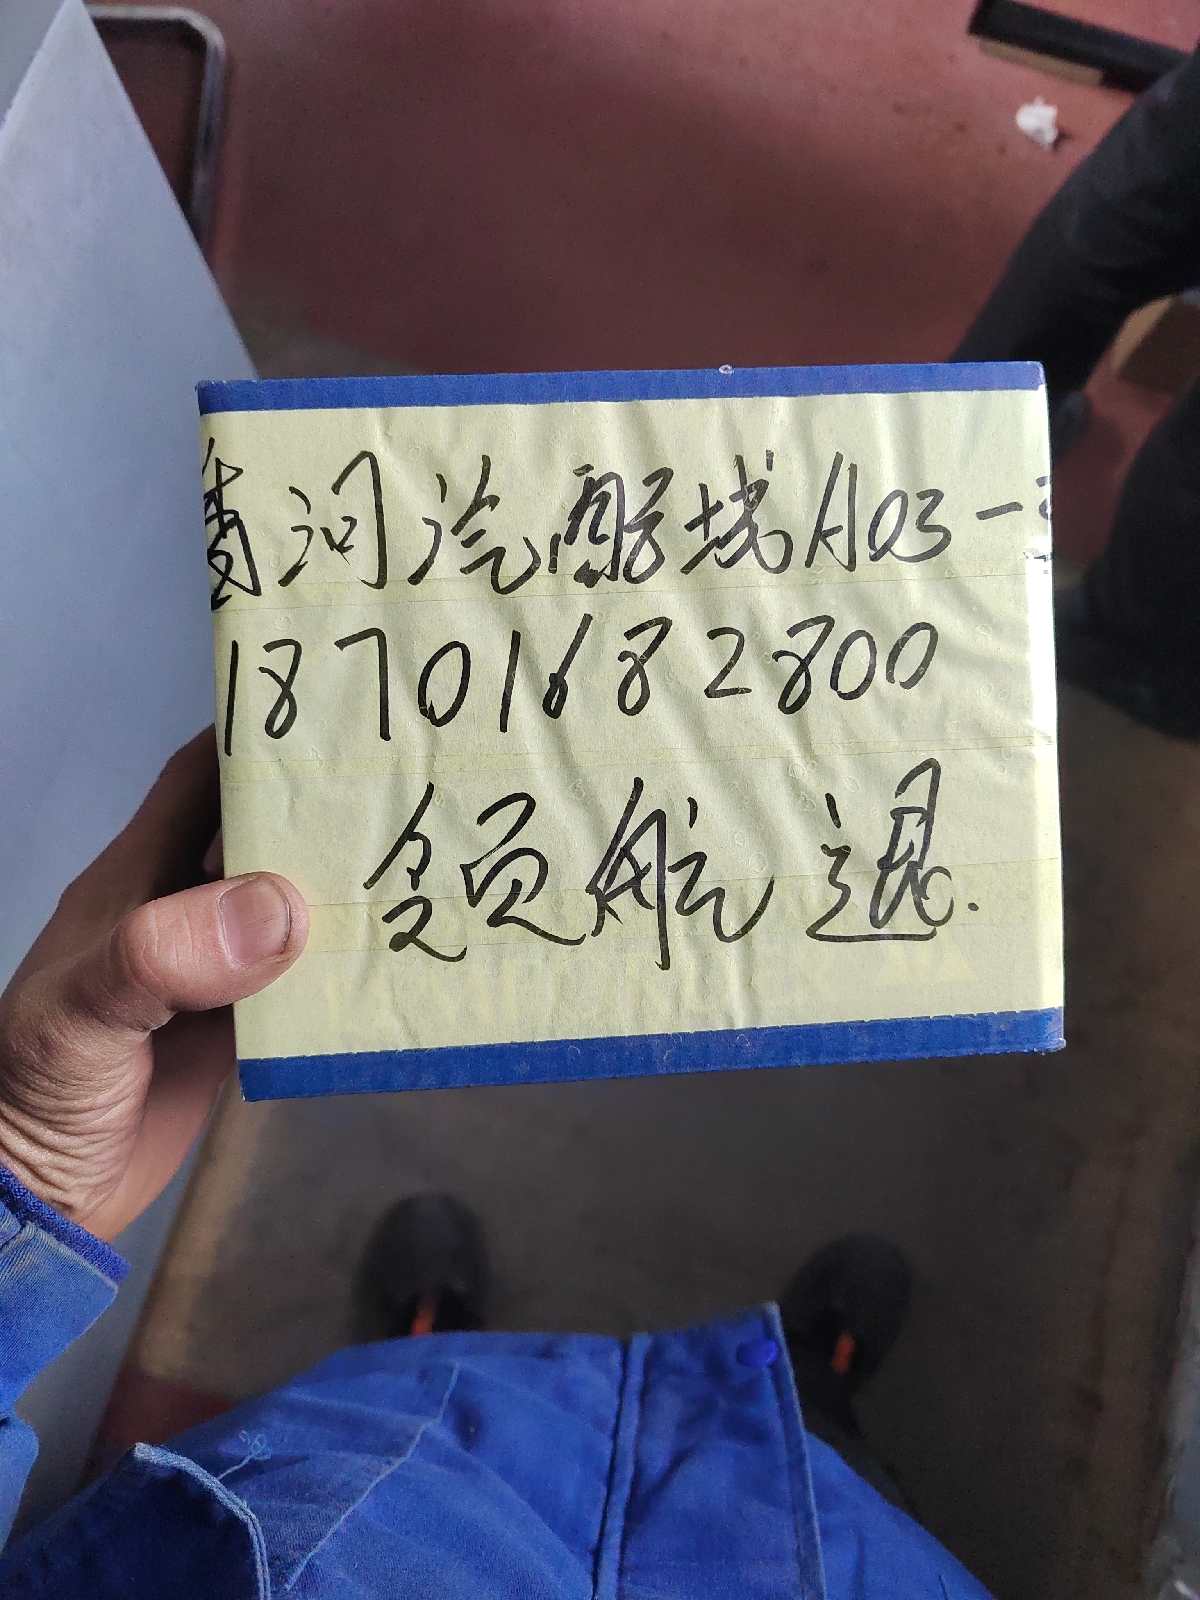 河汽配城A03-
18701682800
领航退.